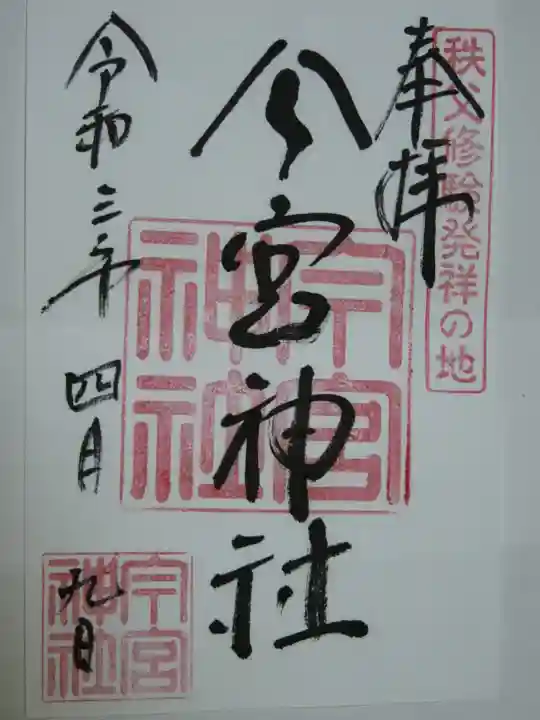 秩父修験発祥の地
奉拝
今宮神社
今宮神社
令和三年四月
九日
今宮神社